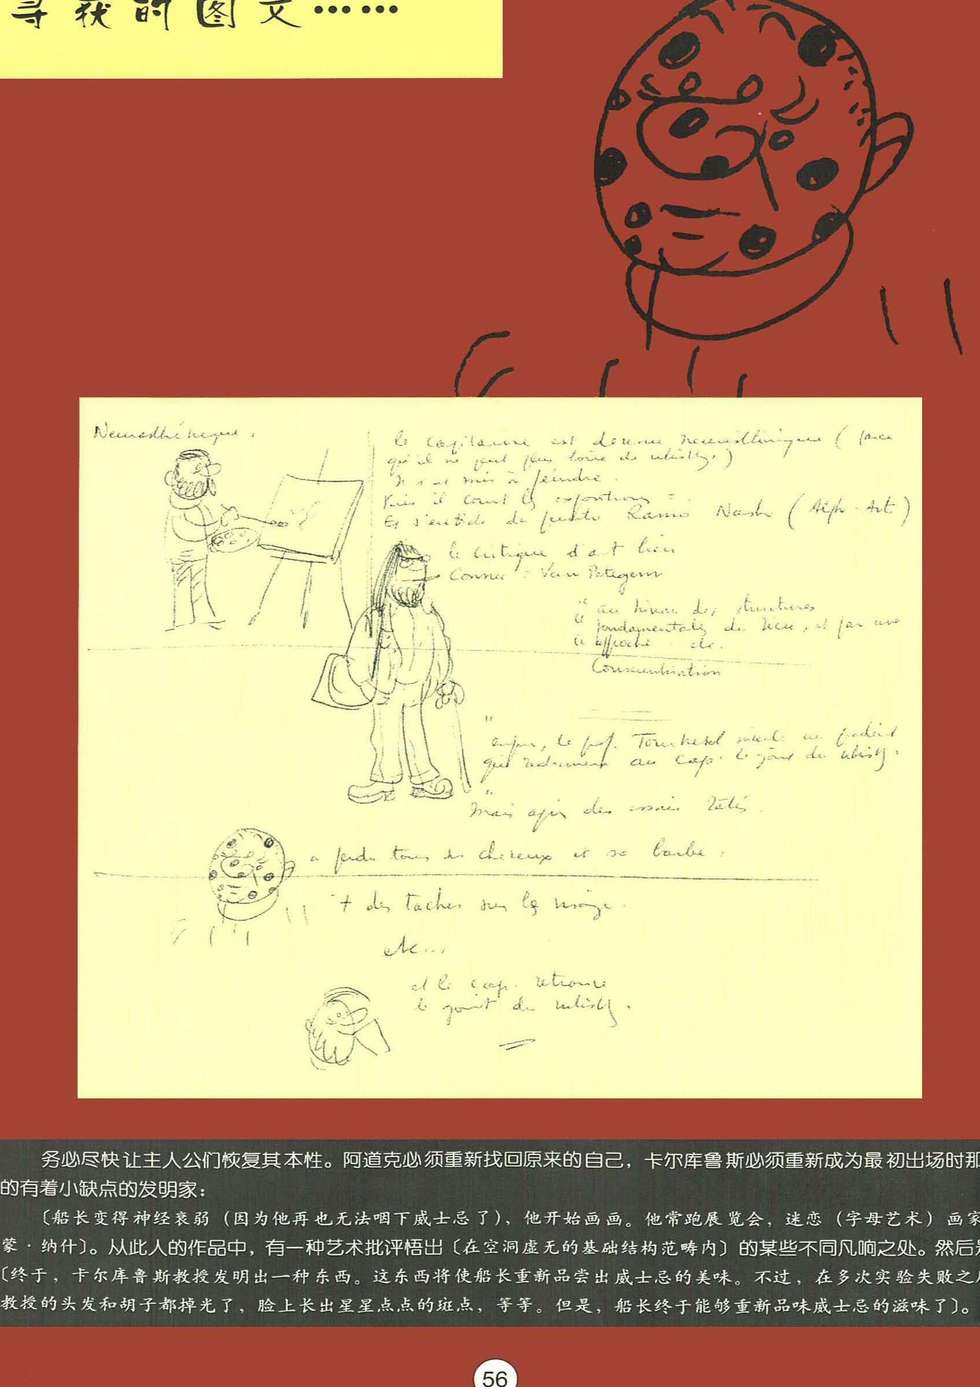 寻获的图文……
Neurasthénique.
le capitaine est devenu neurasthénique (parce
qu'il ne peut plus boire de whisky.)
Il s'est mis à peindre.
Puis il court les expositions
Et s'entiche du peintre Ramo Nash (Alph-Art)
le critique d'art bien
connu : Van Petegem
"au niveau des structures
fondamentales du vécu, et par une
approche de
Conscientisation
enfin, le prof. Tournesol invente un produit
qui redonnera au cap. le goût du whisky.
Mais après des essais ratés.
a perdu tous ses cheveux et sa barbe.
+ des taches sur le visage.
etc...
et le cap. retrouve
le goût du whisky.
务必尽快让主人公们恢复其本性。阿道克必须重新找回原来的自己，卡尔库鲁斯必须重新成为最初出场时那
的有着小缺点的发明家：
〔船长变得神经衰弱（因为他再也无法咽下威士忌了），他开始画画。他常跑展览会，迷恋（字母艺术）画家
蒙·纳什〕。从此人的作品中，有一种艺术批评悟出〔在空洞虚无的基础结构范畴内〕的某些不同凡响之处。然后是
〔终于，卡尔库鲁斯教授发明出一种东西。这东西将使船长重新品尝出威士忌的美味。不过，在多次实验失败之后
教授的头发和胡子都掉光了，脸上长出星星点点的斑点，等等。但是，船长终于能够重新品味威士忌的滋味了〕。
56